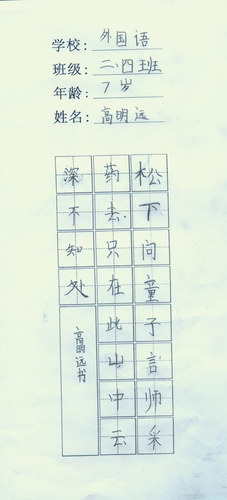 学校: 外国语
班级: 二.四班
年龄: 7岁
姓名: 高明远
松下问童子言师采
药去.只在此山中云
深不知处
高明远书